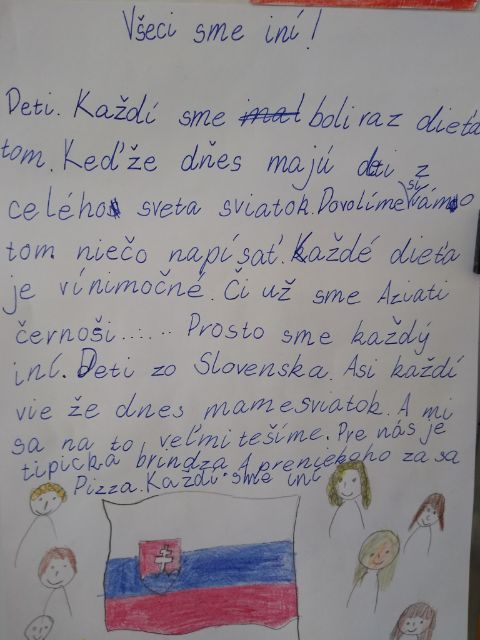 Všeci sme iní!
Deti. Každí sme mal boli raz dieťa
tom. Keďže dňes majú deti z
celého sveta sviatok. Dovolíme si vám o
tom niečo napísať. Každé dieťa
je vínimočné. Či už sme Aziati
černoši...... Prosto sme každý
iní. Deti zo Slovenska. Asi každí
vie že dnes mamesviatok. A mi
sa na to veľmi tešíme. Pre nás je
tipická brindza. A preniekoho za sa
Pizza. Každí sme iní